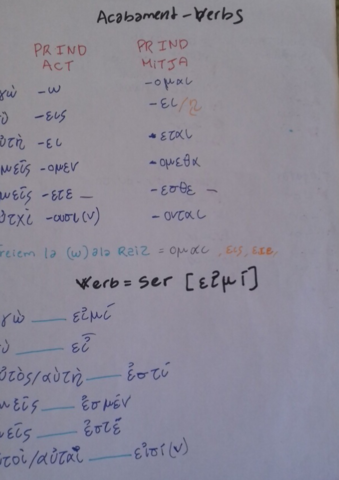 Acabament-Verbs
PR IND PR IND
ACT MITJA
γώ -ω -ομαι
ύ -εις -ει/ῃ
ύτη -ει -εται
μεῖς -ομεν -ομεθα
μεῖς -ετε — -εσθε —
-ουσι(ν) -ονται
relem la (ω) ala Reiz = ομαι, εις, ετε.
Verb = ser [εἰμί]
γώ — εἰμί
ύ — εἶ
ὐτὸς/αὐτὴ — ἐστί
μεῖς — ἐσμέν
μεῖς — ἐστέ
ὐτοί/αὐταί — εἰσί(ν)